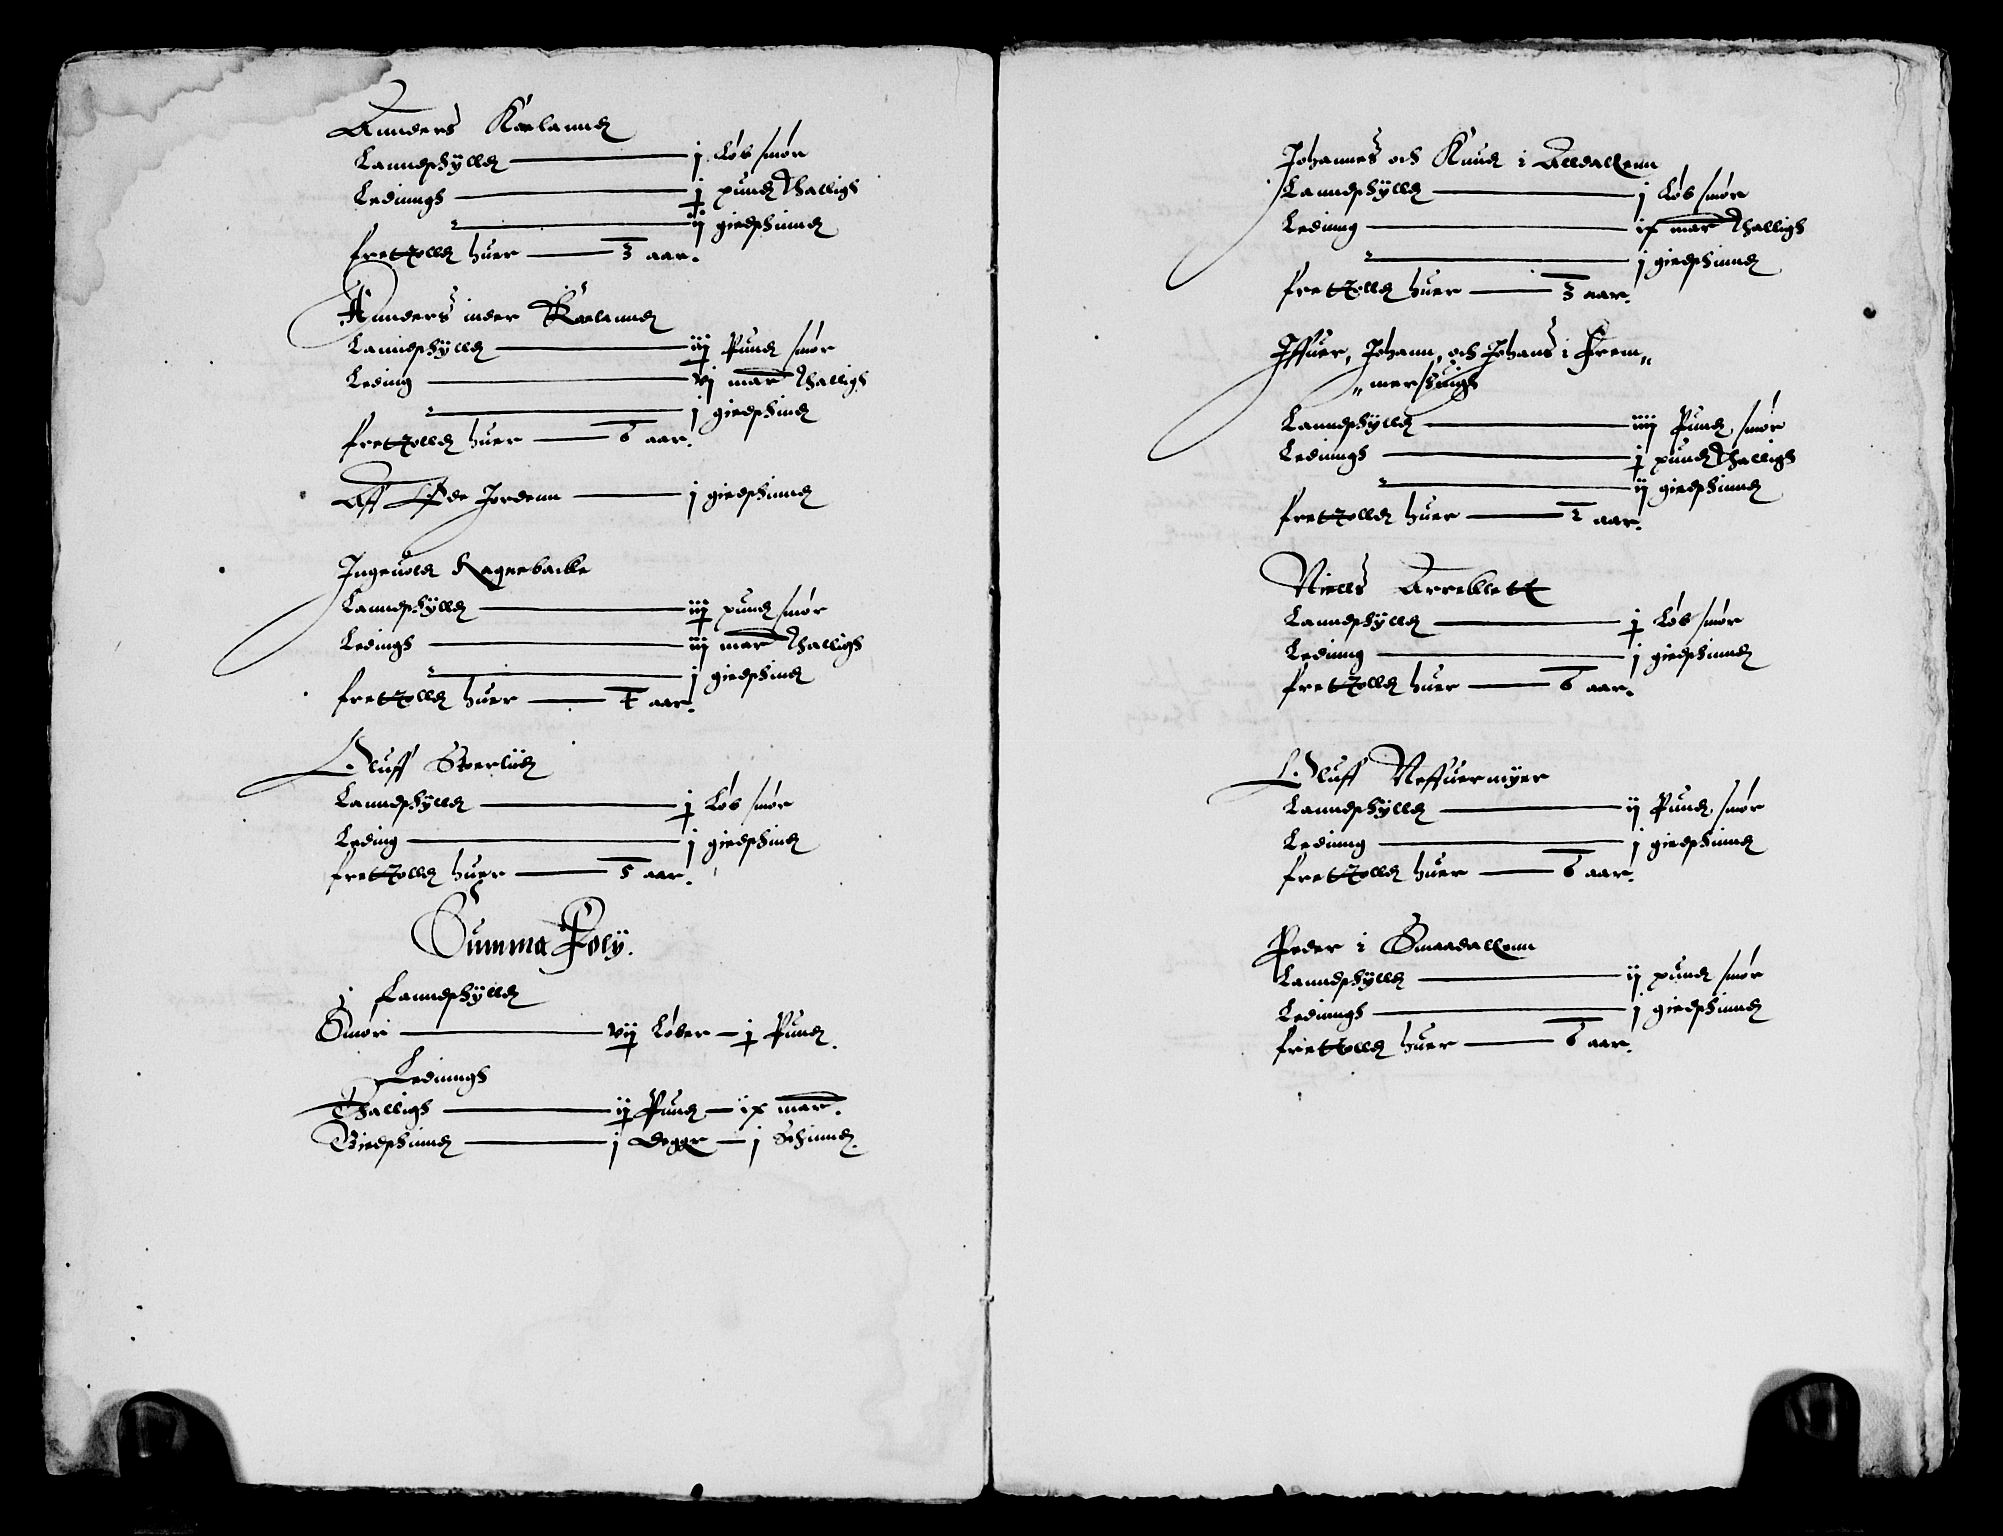 Anders Kaeland
Landschÿlld — j Løb smør
Ledings — j pund Thalligh
— ij giedschind
fretzolld huer — 3 aar.
Anders inder Kaeland
Landschÿlld — iij Pund smør
Leding — vj mar Thalligh
— j giedschind
fretzolld huer — 6 aar.
Aff Øde Jordenn — j giedschinnd
Ingeuold Ragnebacke
Landschÿlld — iij pund smør
Ledings — iij mar Thalligh
— j giedschind
fretzolld huer — 4 aar.
Oluff
Landschÿlld — j Løb smør
Leding — j giedschind
fretzolld huer — 5 aar.
Summa Folÿ.
j Landschÿlld
Smør — vij Løber — j Pund.
Ledings
Thalligh — ij Pund — ix mar.
Giedschinnd — j degger — j Schinnd.
Johannes och Knud i Alldallenn
Landschÿlld — j Løb smør
Leding — ix mar Thalligh
— j giedschinnd
fretzolld huer — 3 aar.
Iffuer, Johann, och Johans i Frem„
„mersuigh
Landschÿlld — iiij Pund smør
Ledings — j pund Thalligh
— ij giedschinnd
fretzolld huer — 2 aar.
Niells Arreklett
Landschÿlld — j Løb smør
Leding — j giedschinnd
fretzolld huer — 6 aar.
Oluff Neffuermÿer
Landschÿlld — ij Pund smør
Leding — j giedschinnd
fretzolld huer — 6 aar.
Peder i Smaadallenn
Landschÿlld — ij pund smør
Ledings — j giedschinnd
fretzolld huer — 6 aar.